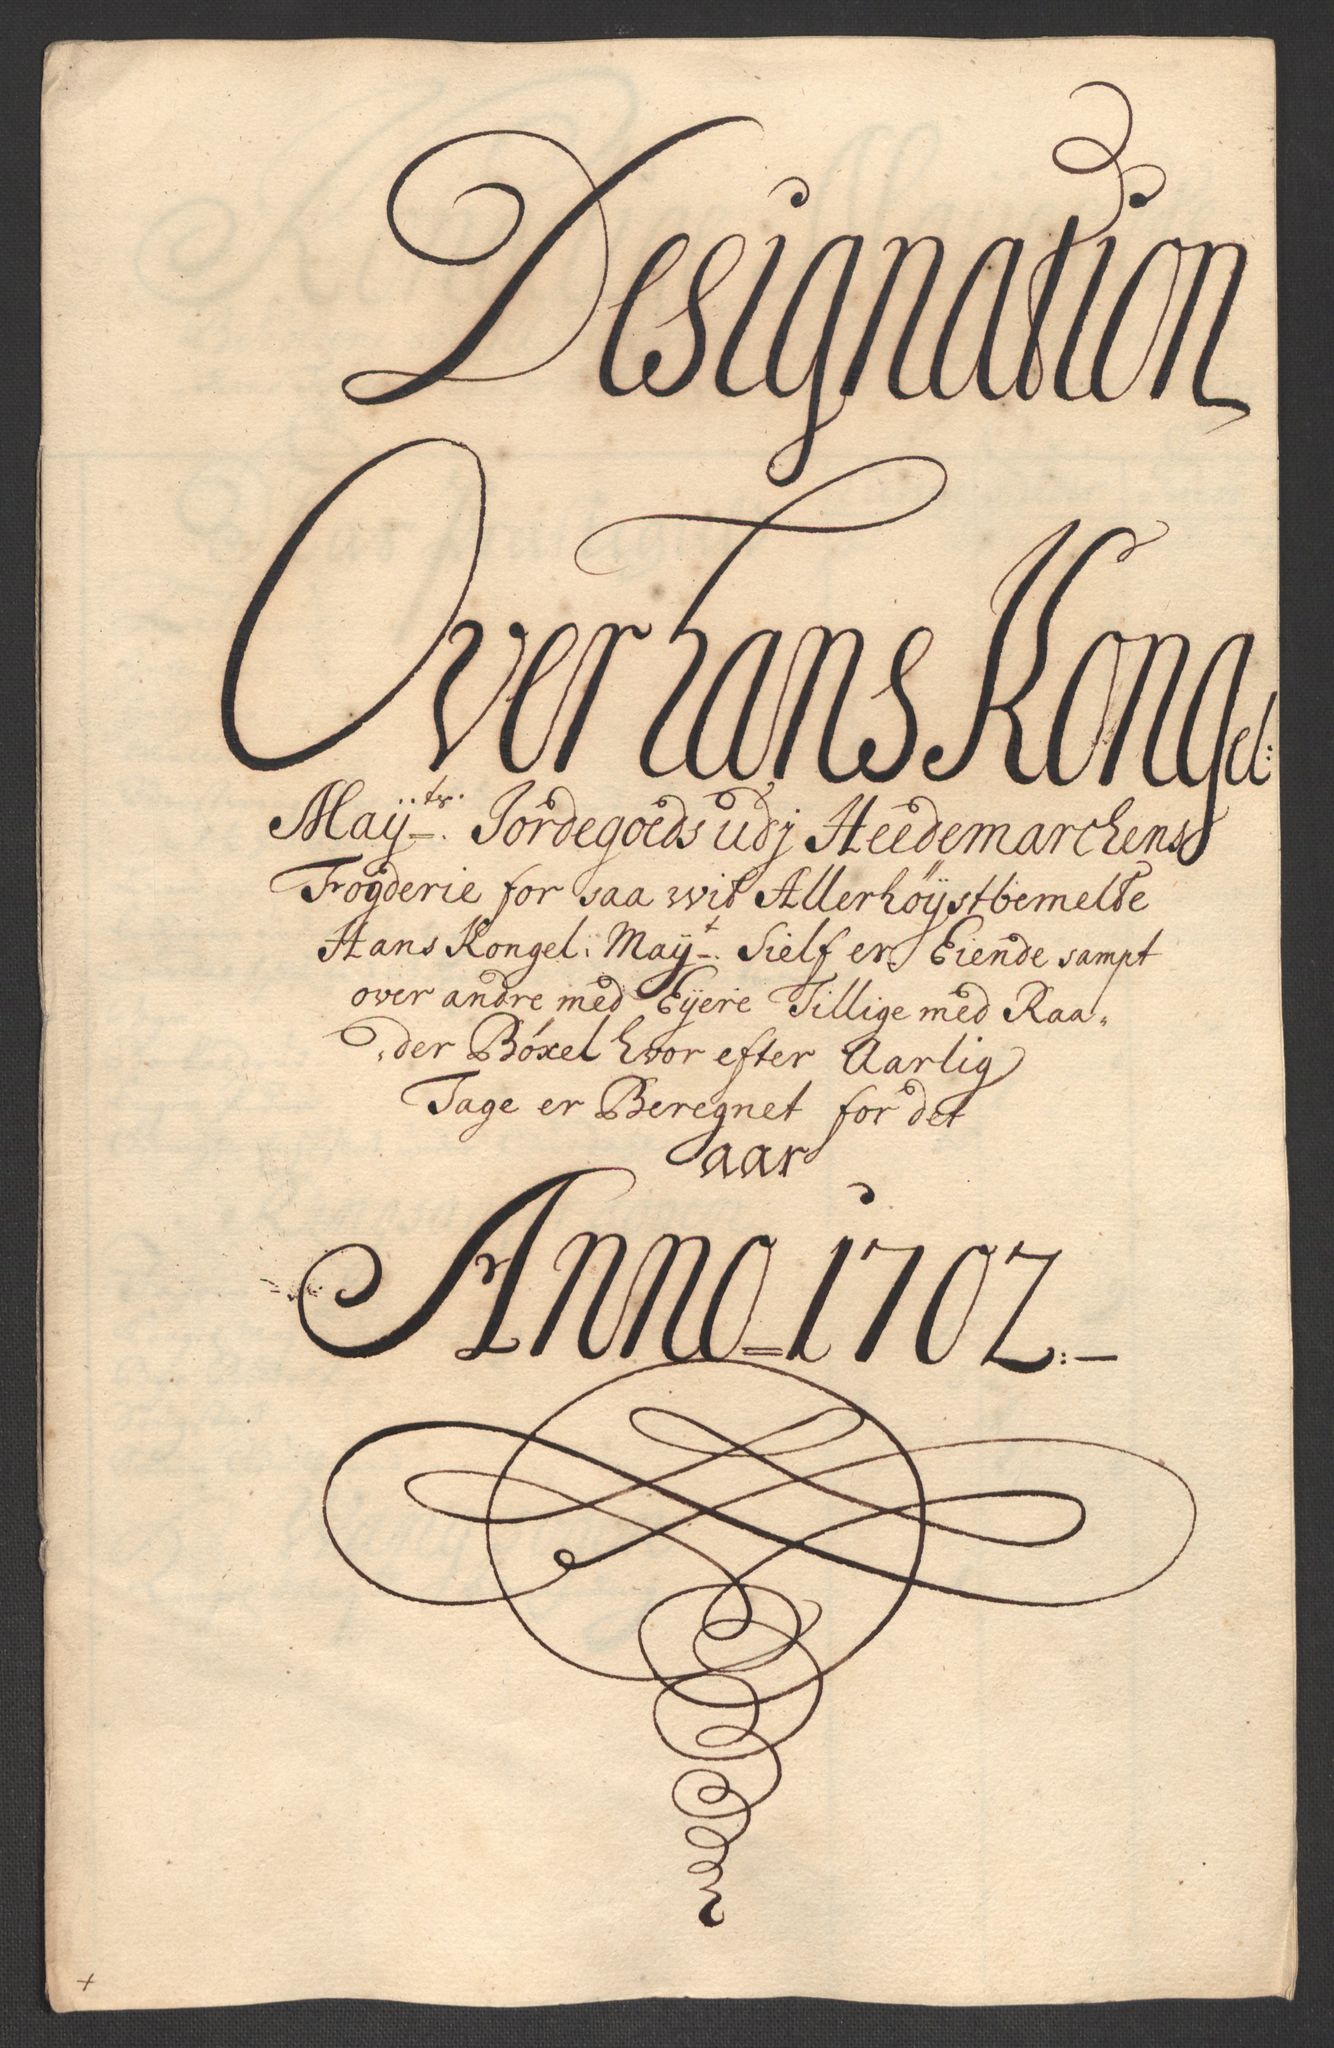 Designation
Over hans Kongel:
Maÿ:ts: Jordegoeds udj Heedemarchens
Fogderie for saa wit Allerhöÿstbemelte
Hans Kongel: Maÿt: Sielf er Eiende sampt
over andre med Eÿere Tillige med Raa„
„der Bóxel hvor efter Aarlig
Tage er Beregnet for det
aar
Anno = 1702 :—